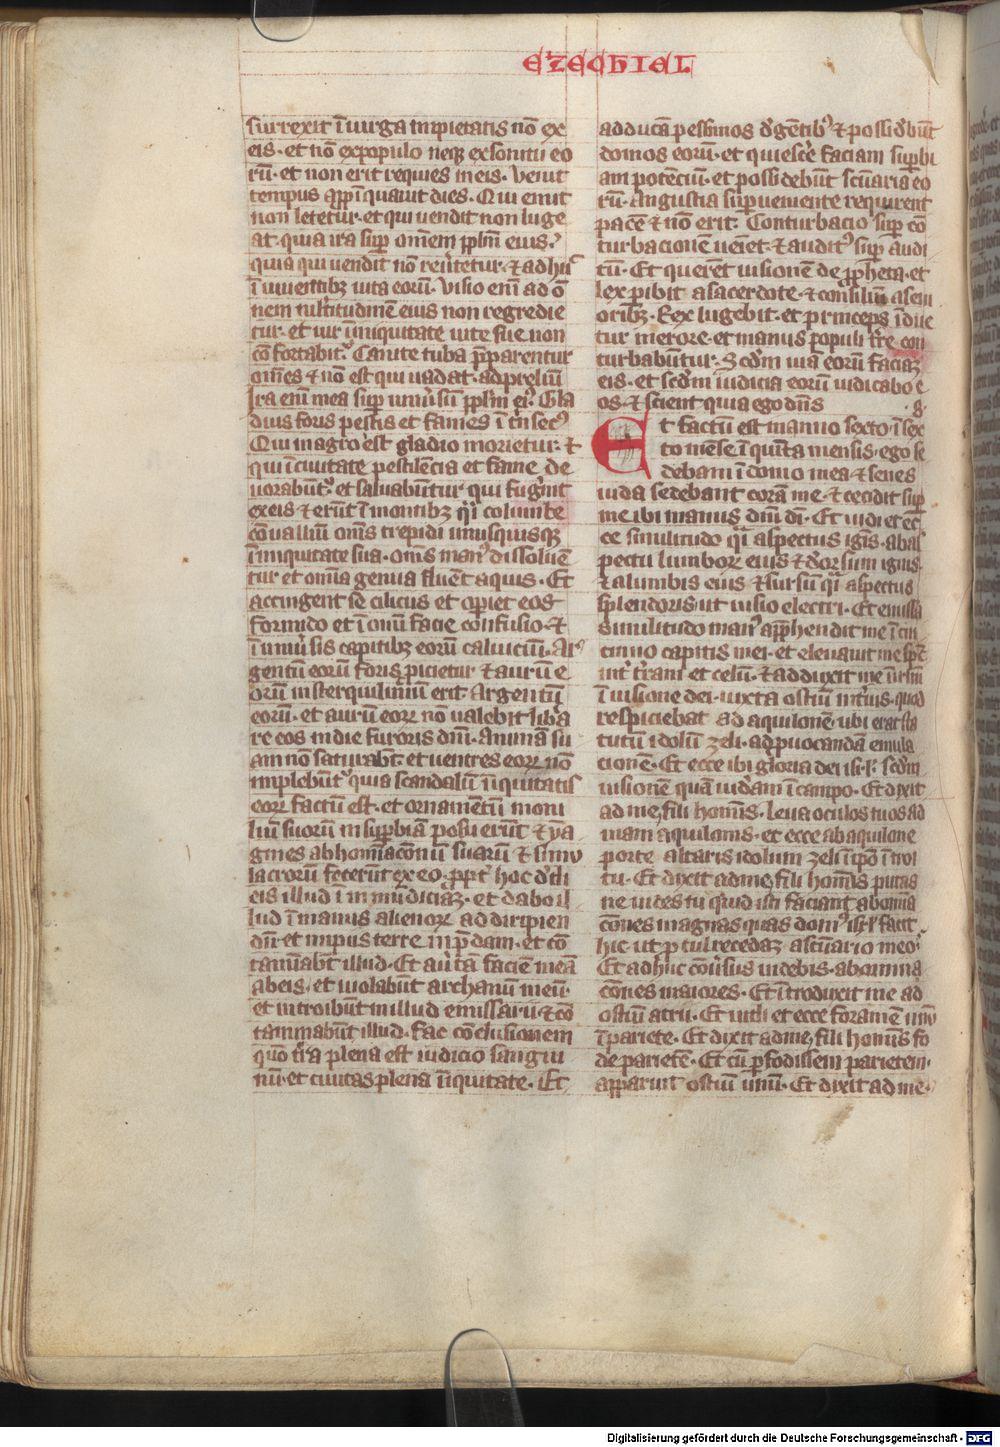 EZECHIEL
surrexit ī uirga impietatis nō ex
eis · et nō ex populo neq; ex sonitu eo
rū · et non erit requies in eis · Venit
tempus app̄inquauit dies · Qui emit
non letetur · et qui uendit non luge
at · quia ira sup̄ om̄em pplm̄ eius ·
quia qui uendit nō reu̓tetur · ⁊ adhuc
ī uiuentibꝫ uita eorū · Visio eni ad ō
nem multitudinē eius non regredie
tur · et uir ī iniquitate uite sue non
cōfortabit᷒ · Canite tuba p̄parentur
om̄es ⁊ nō est qui uadat · ad preliū
Ira eni mea sup̄ uniu̓sū pplm̄ ei᷒ · Gla
dius foris pestis et fames ītrīsec᷒
Qui in agro est gladio morietur · ⁊
qui ī ciuitate pestilēcia et fame de
uorabūt᷒ · et saluabūntur qui fug̓int
ex eis · ⁊ erūt ī montibꝫ q̄i columbe
cōualliū om̄s trepidi unusquisq;
ī iniquitate sua · om̄s man᷒ dissoluē
tur et om̄ia genua fluēt aquis · Et
accingent se ciliciis et op̓iet eos
formido et ī omi facie confusio · ⁊
ī uniu̓sis capitibꝫ eorū caluiciū · Ar
gentū eorū foris ꝓicietur ⁊ aurū e
orū in sterquiliniū erit Argentū
eorū · et aurū eorꝝ nō ualebit lib̓a
re eos in die furoris dn̄i · Animā su
am nō saturabt̄ · et uentres eorꝝ nō
implebūt᷒ quia scandalū īiquitatis
eorꝝ factū est · et ornamentū moni
liū suorū in sup̄biā posuerūt ⁊ yma
gines abhomīaconū suarū ⁊ simu
lacrorū fecerūt ex eo · ꝓpt̓ hoc dedi
eis illud ī inmūdiciaꝫ · et dabo il
lud ī manus alienorꝝ ad diripien
dū · et impiis terre in p̄dam · et cō
taminabt̄ illud · Et au̓tā faciē meā
ab eis · et uiolabūt archanū meū ·
et introibūt in illud emissarii ⁊ cō
taminabūt illud · Fac cōclusionem
qm̄ t̓ra plena est iudicio sangui
nū · et ciuitas plena īiquitate · Et
adducā pessimos de gētib᷒ ⁊ possidebūt
domos eorū · et quiesc̓e faciam sup̄bi
am potēciū · et possidebūt sc̄uaria eo
rū · Angustia sup̄ueniente requirent
pacē ⁊ nō erit · Conturbacio sup̄ cō
turbacionē ueīet · ⁊ audit᷒ sup̄ audi
tū · Et querēt uisionē de ꝓpheta · et
lex ꝑibit a sacerdote · ⁊ cōsiliū a seni
oribꝫ · Rex lugebit · et princeps īdue
tur merore · et manus populi t̓re con
turbabūtur · Scd̄m uiā eorū faciaꝫ
eis · et scd̄m iudicia eorū iudicabo e
os · ⁊ scient quia ego dn̄s · 8 ·
Et factū est in anno sexto ī sex
to mēse ī quīta mensis · ego se
debam ī domo mea · ⁊ senes
iuda sedebant corā me · ⁊ cecidit sup̄
me ibi manus dn̄i dī · Et uidi et ec
ce similitudo q̄i aspectus ignis · ab as
pectu lumborꝝ eius ⁊ deorsum ignis
⁊ a lumbis eius ⁊ sursū q̄i aspectus
splendoris · ut uisio electri · Et emissa
similitudo man᷒ app̄hendit me ī cin
cinno capitis mei · et eleuauit me sp̄c
int̓ t̓ram et celū · ⁊ adduxit me ī ir̄lm̄
ī uisione dei · iuxta ostiū int̓ius · quod
respiciebat ad aquilonē · ubi erat sta
tutū idolū zeli · ad ꝓuocandā emula
cionē · Et ecce ibi gloria dei isrl̄ · scd̄m
uisionē quā uid̓am ī campo · Et dixit
ad me · fili homis · leua oculos tuos ad
uiam aquilonis · et ecce ab aquilone
porte altaris idolum zeli ī ip̄o ītroi
tu · Et dixit ad me · fili homis putas
ne uides tu quid isti faciant abomīa
cōnes magnas quas dom᷒ isrl̄ facit
hic ut ꝓcul recedaꝫ a sc̄uario meo ·
Et adhuc cōu̓sus uidebis · abomina
cōnes maiores · Et ītroduxit me ad
ostiū atrii · Et uidi et ecce foramē unū
ī pariete · Et dixit ad me · fili homis fo
de parietē · Et cū ꝑfodissem parietem ·
apparuit ostiū unū · Et dixit ad me ·
Digitalisierung gefördert durch die Deutsche Forschungsgemeinschaft - DFG